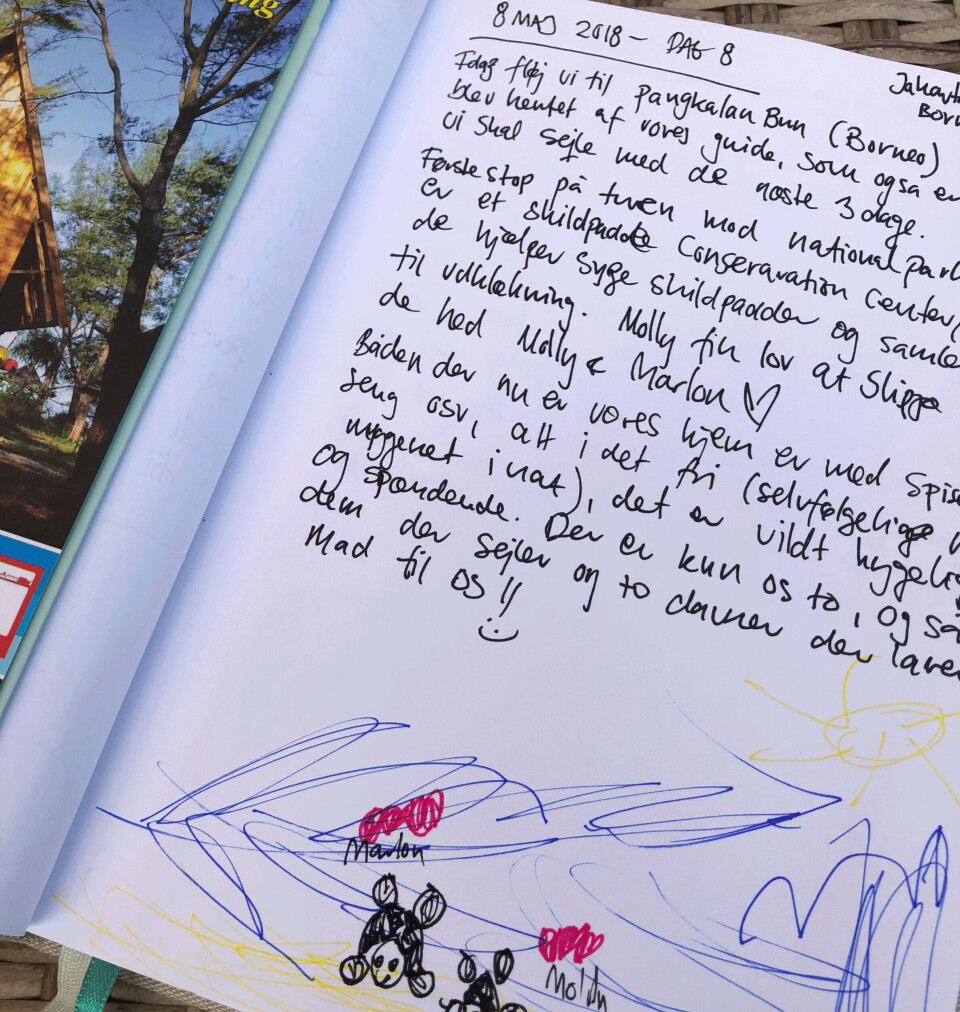 ng
8 MAJ 2018 - DAG 8
Jakarta
Born
Idag fløj vi til Pangkalan Bun (Borneo)
blev hentet af vores guide, som også er
vi skal sejle med de næste 3 dage.
Første stop på turen mod nationalpark
er et skildpadde Conseravation Center,
de hjælper syge skildpadder og samle
til udklækning. Molly fik lov at slippe
de hed Molly & Marlon ♡
Båden der nu er vores hjem er med spise
seng osv, alt i det fri (selvfølgelig
myggenet i nat), det er vildt hyggelig
og spændende. Der er kun os to, og så
dem der sejler og to damer der laver
Mad til os !!
Marlon